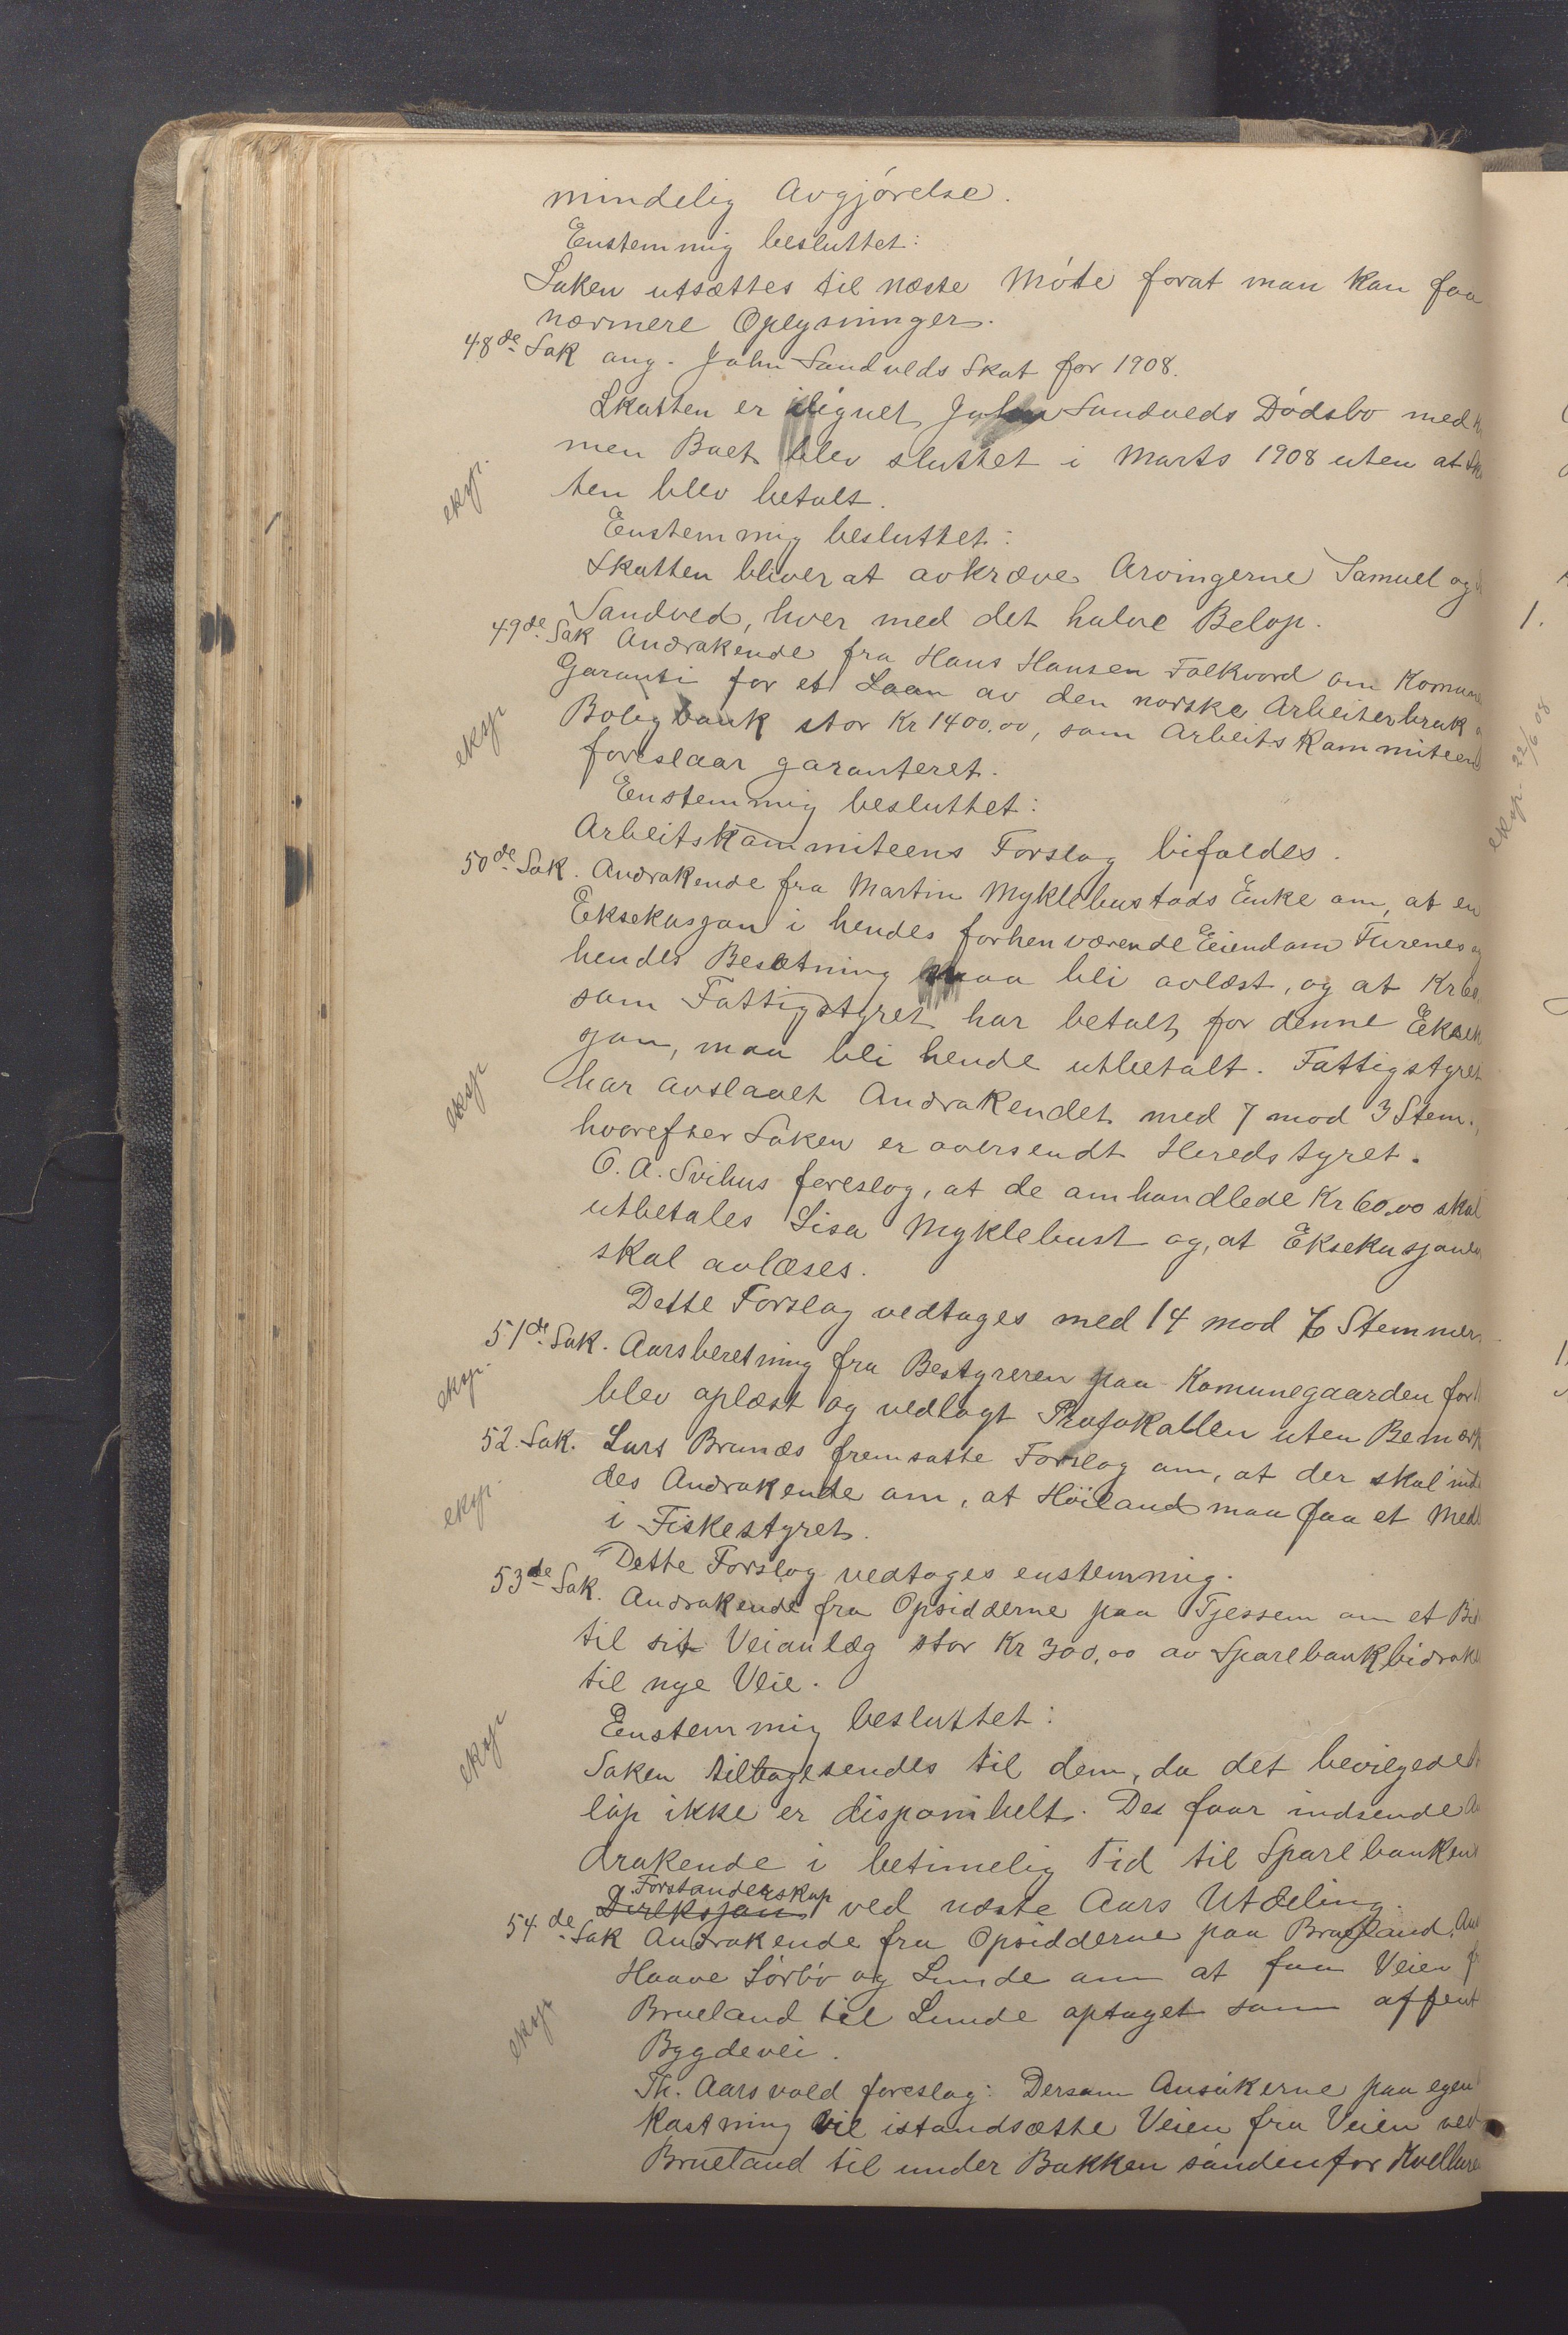 mindelig Avgjórelse.
Enstemmig besluttet:
Saken utsættes til næste Móte forat man kan faa
nærmere Oplysninger.
48de Sak ang. John Sandveds Skat for 1908.
Skatten er ilignet John Sandveds Dódsbo med
men Boet blev sluttet i Marts 1908 uten at
eksp.
ten blev betalt.
Enstemmig besluttet:
Skatten bliver at avkræve Arvingerne Samuel og
Sandved, hver med det halve Belop.
49de Sak Andrakende fra Hans Hansen Folkvord om Komune
Garanti for et Laan av den norske Arbeiterbruk
Boligbank stor Kr 1400.00, som Arbeitskommiteen
eksp
foreslaar garanteret.
Enstemmig besluttet:
Arbeitskommiteens Forslag bifaldes.
50de Sak. Andrakende fra Martin Myklebustads Enke om, at en
Eksekusjon i hendes forhenværende Eiendom Furenes og
hendes Besætning maa bli avlæst, og at Kr 60
som Fattigstyret har betalt for denne Eksek
sjon, maa bli hende utbetalt. Fattigstyret
eksp
har avslaaet Andrakendet med 7 mod 3 Stem.,
hvorefter Saken er oversendt Heredstyret.
O. A. Svihus foreslog, at de omhandlede Kr 60.00 skal
utbetales Lisa Myklebust og, at Eksekusjonen
skal avlæses.
Dette Forslag vedtages med 14 mod 6 Stemmer.
51de Sak. Aarsberetning fra Bestyreren paa Komunegaarden for
eksp.
blev oplæst og vedlagt Protokollen uten Bemærk
52. Sak. Lars Brunæs fremsatte Forslag om, at der skal ind
eksp.
des Andrakende om, at Höiland maa faa et Med
i Fiskestyret.
Dette Forslag vedtoges enstemmig.
53de Sak. Andrakende fra Opsidderne paa Tjessem om et Bi
til sit Veianlæg stor Kr 300,00 av Sparebankbidrak
til nye Veie.
Enstemmig besluttet:
eksp
Saken tilbagesendes til dem, da det bevilgede
lóp ikke er disponibelt. Des faar indsende An
drakende i betimelig Tid til Sparebankens
Forstanderskap
Direksjon ved næste Aars Utdeling.
54de Sak Andrakende fra Opsidderne paa Brueland,
Haave Sórbó og Lunde om at faa Veien f
Brueland til Lunde optaget som offent
eksp
Bygdevei.
Th. Aarsvold foreslog: Dersom Ansókerne paa egen
Kostning vil istandsætte Veien fra Veien ved
Brueland til under Bakken sóndenfor Kvellure
1.
eksp. 22/6 08